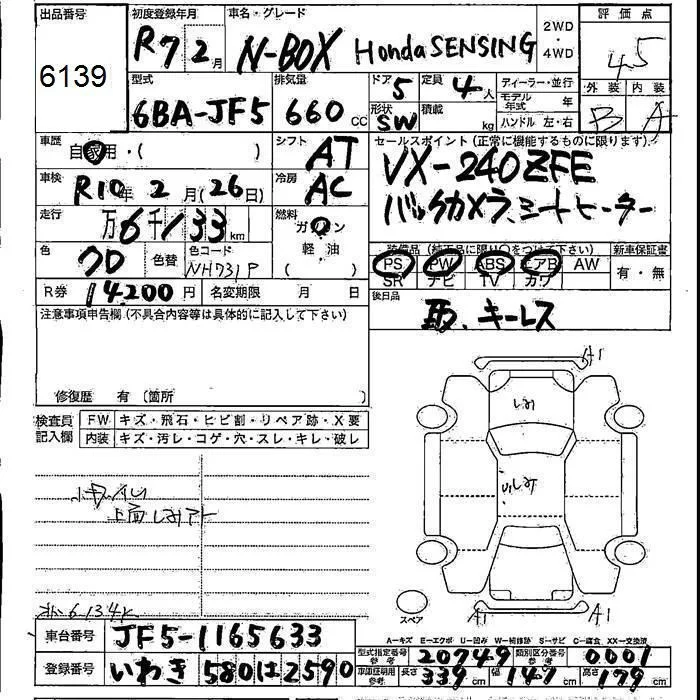 出品番号 初度登録年月 車名・グレード 2WD・4WD 評価点
6139 R7 2月 N-BOX Honda SENSING 4.5
型式 排気量 ドア 5 定員 4人 ディーラー・並行 外装 内装
6BA-JF5 660cc 形状 SW 積載 kg モデル年式 年 B A
ハンドル 左・右
車歴 自家用・( ) シフト AT セールスポイント(正常に機能するものに限ります)
車検 R10年 2月(26日) 冷房 AC VX-240ZFE
走行 万6千133km 燃料 ガソリン バックカメラ、シートヒーター
軽油
色 クロ 色替 色コード NH731P ( ) 装備品(純正品に限り○をつけて下さい) 新車保証書
PS PW ABS エアB AW 有・無
SR ナビ TV カワ
R券 14200円 名変期限 月 日 後日品
取、キーレス
注意事項申告欄(不具合内容等は具体的に記入して下さい)
修復歴 有(箇所 )
検査員記入欄 FW キズ・飛石・ヒビ割・リペア跡・X要
内装 キズ・汚レ・コゲ・穴・スレ・キレ・破レ
上面しみアト
A1
しみ
しみ
スペア
A1
A1
車台番号 JF5-1165633
A-キズ E-エクボ U-凹み W-補修跡 S-サビ C-腐食 XX-交換済
型式指定番号 参考 20749 類別区分番号 参考 0001
登録番号 いわき 580 は 2590
車庫証明用 参考 長さ 339cm 幅 147cm 高さ 179cm